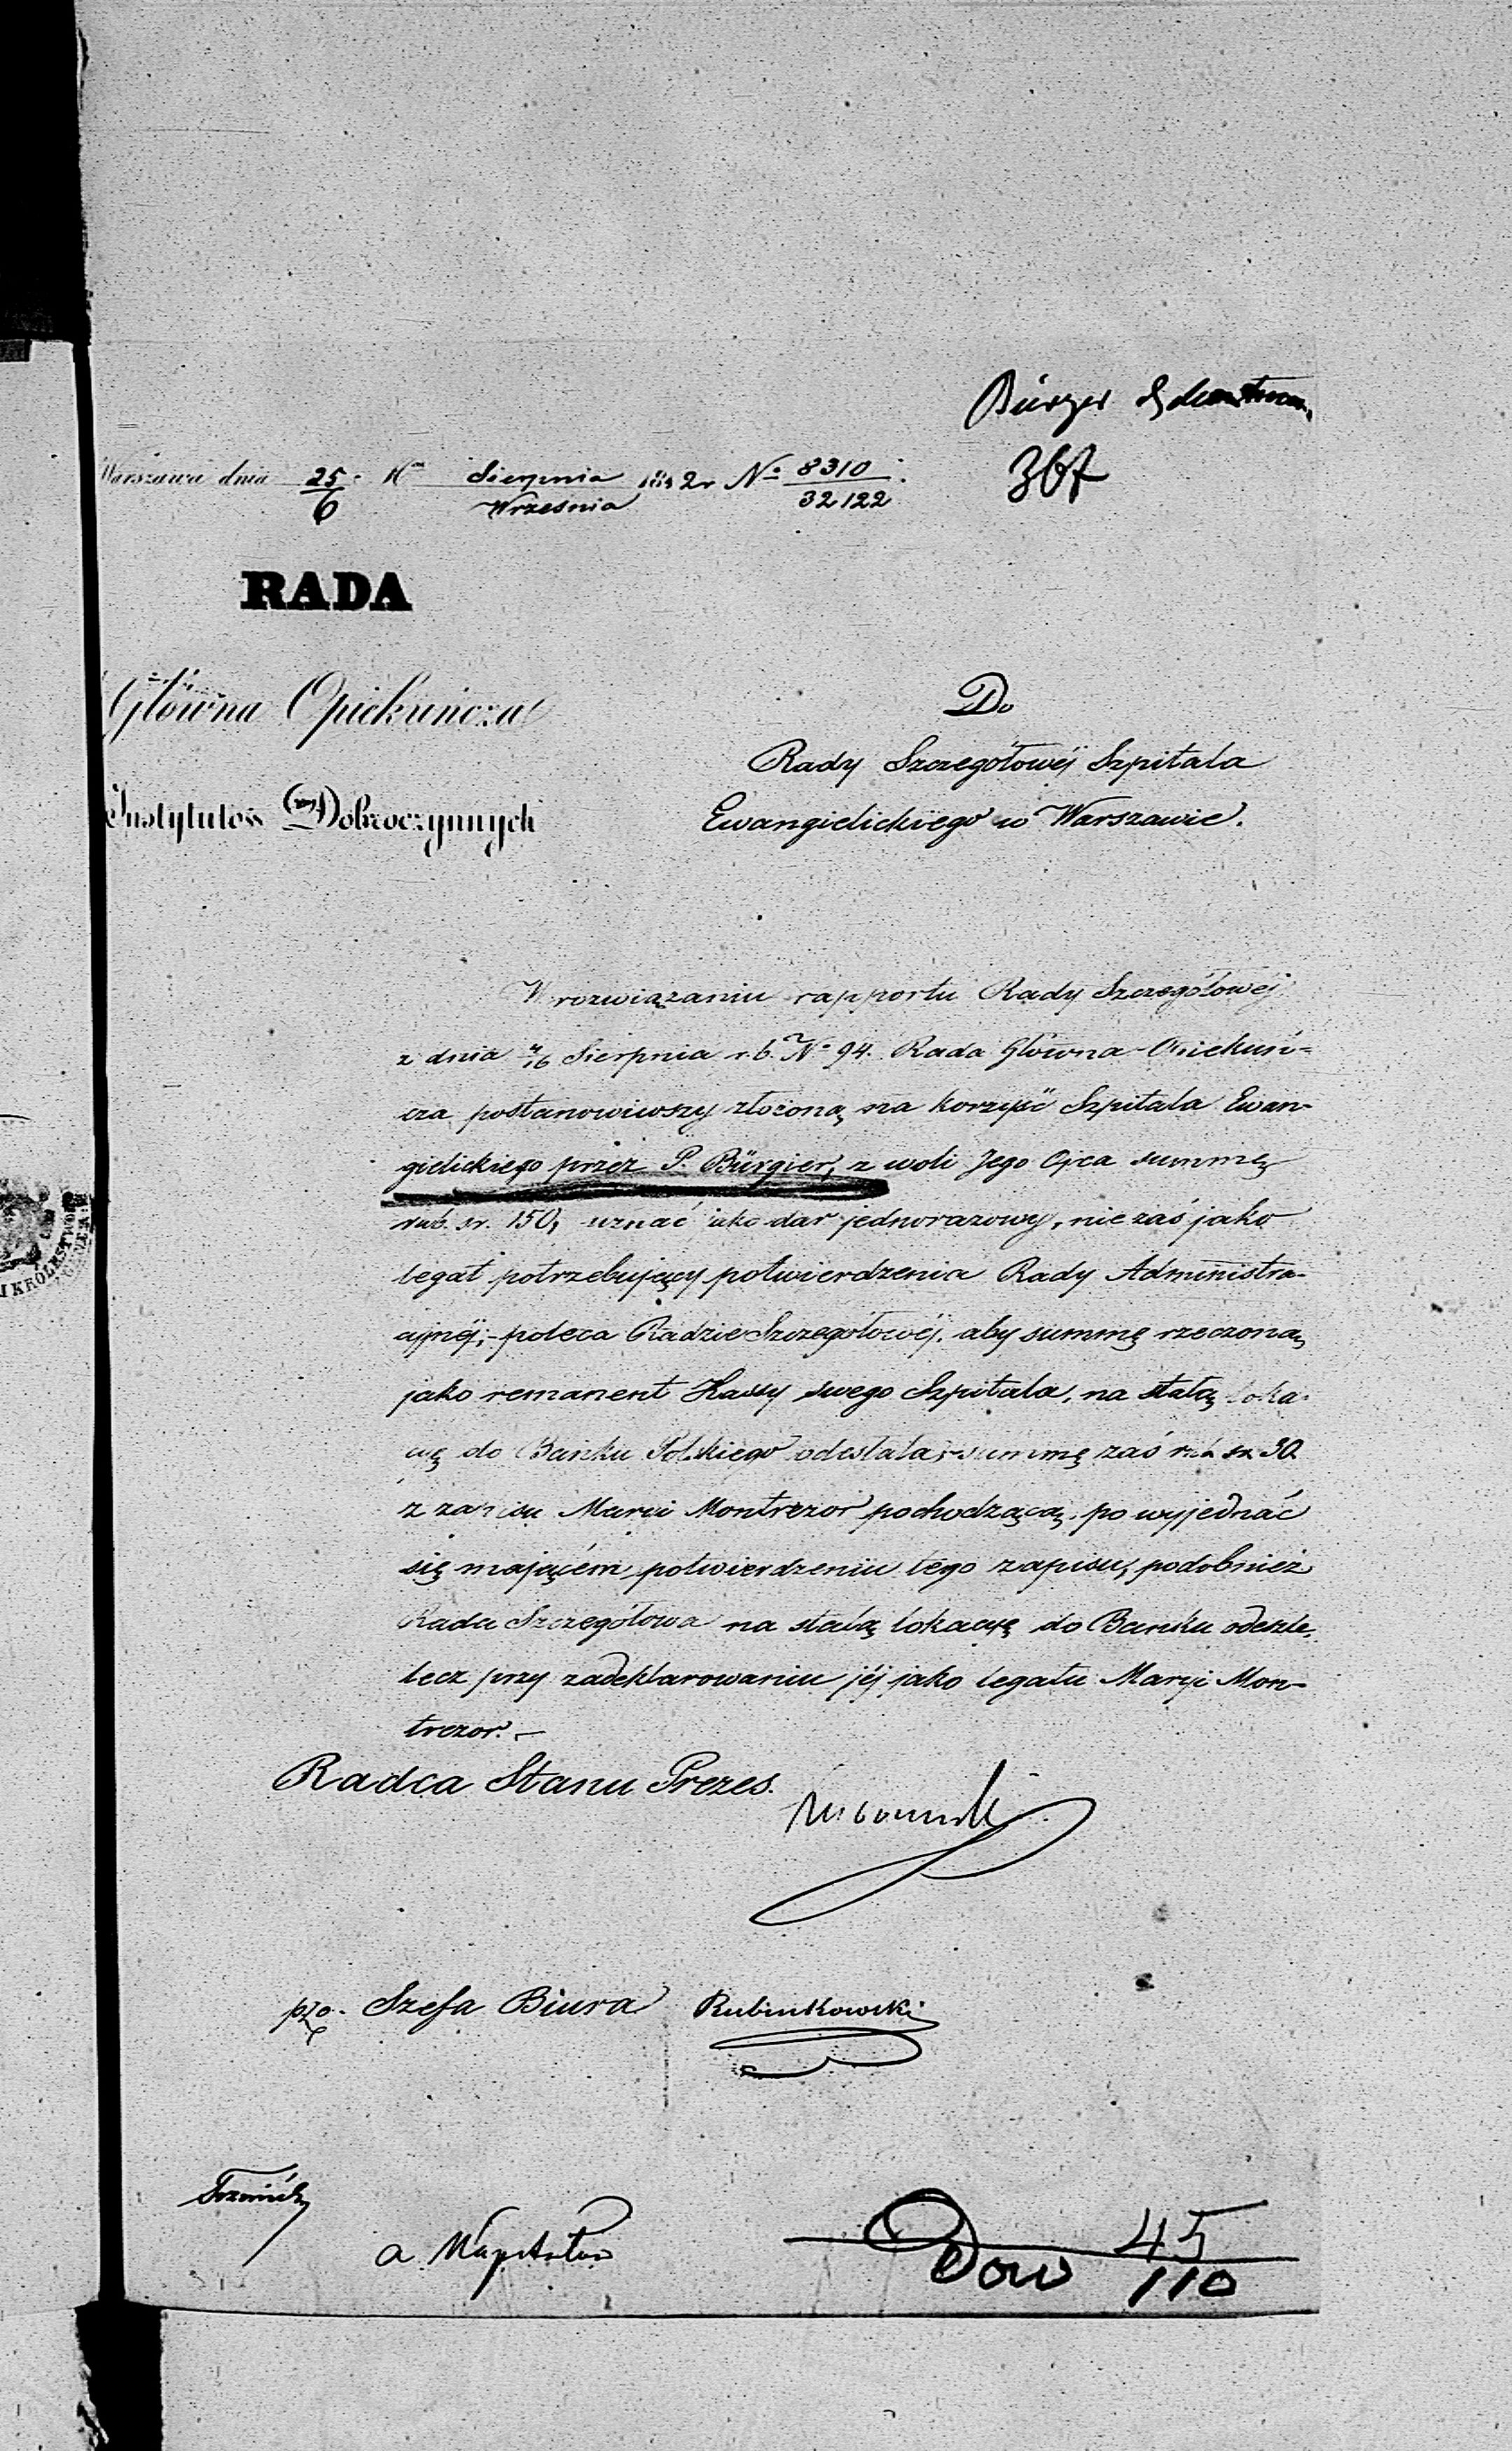 Bürger
367
Warszawa dnia 25/6 Sierpnia/Września 1842 r N° 8310/32122.
RADA
Główna Opiekuńcza
Instytutów Dobroczynnych
Do
Rady Szczegółowéj Szpitala
Ewangielickiego w Warszawie.
W rozwiązaniu rapportu Rady Szczegółowéj
z dnia 4/16 Sierpnia r.b. N° 94. Rada Główna Opiekuń=
cza postanowiwszy złożoną na korzyść Szpitala Ewan-
gielickiego przez P. Bürgier, z woli Jego Ojca summę
rub. sr. 150, uznać jako dar jednorazowy, nie zaś jako
legat potrzebujący potwierdzenia Rady Administra-
cyjnéj,- poleca Radzie Szczegółowéj, aby summę rzeczoną
jako remanent Kassy swego Szpitala, na stałą loka-
cyę do Banku Polskiego odesłała,- summę zaś rub sr 30
z zapisu Maryi Montrezor pochodzącą, po wyjednać
się mającém potwierdzeniu tego zapisu, podobnież
Rada Szczegółowa na stałą lokacyę do Banku odeszle,
lecz przy zadeklarowaniu jéj jako legatu Maryi Mon-
trezor.-
Radca Stanu Prezes.
pzo. Szefa Biura Rubinkowski
a
Dow 45/110
KRÓLESTWO